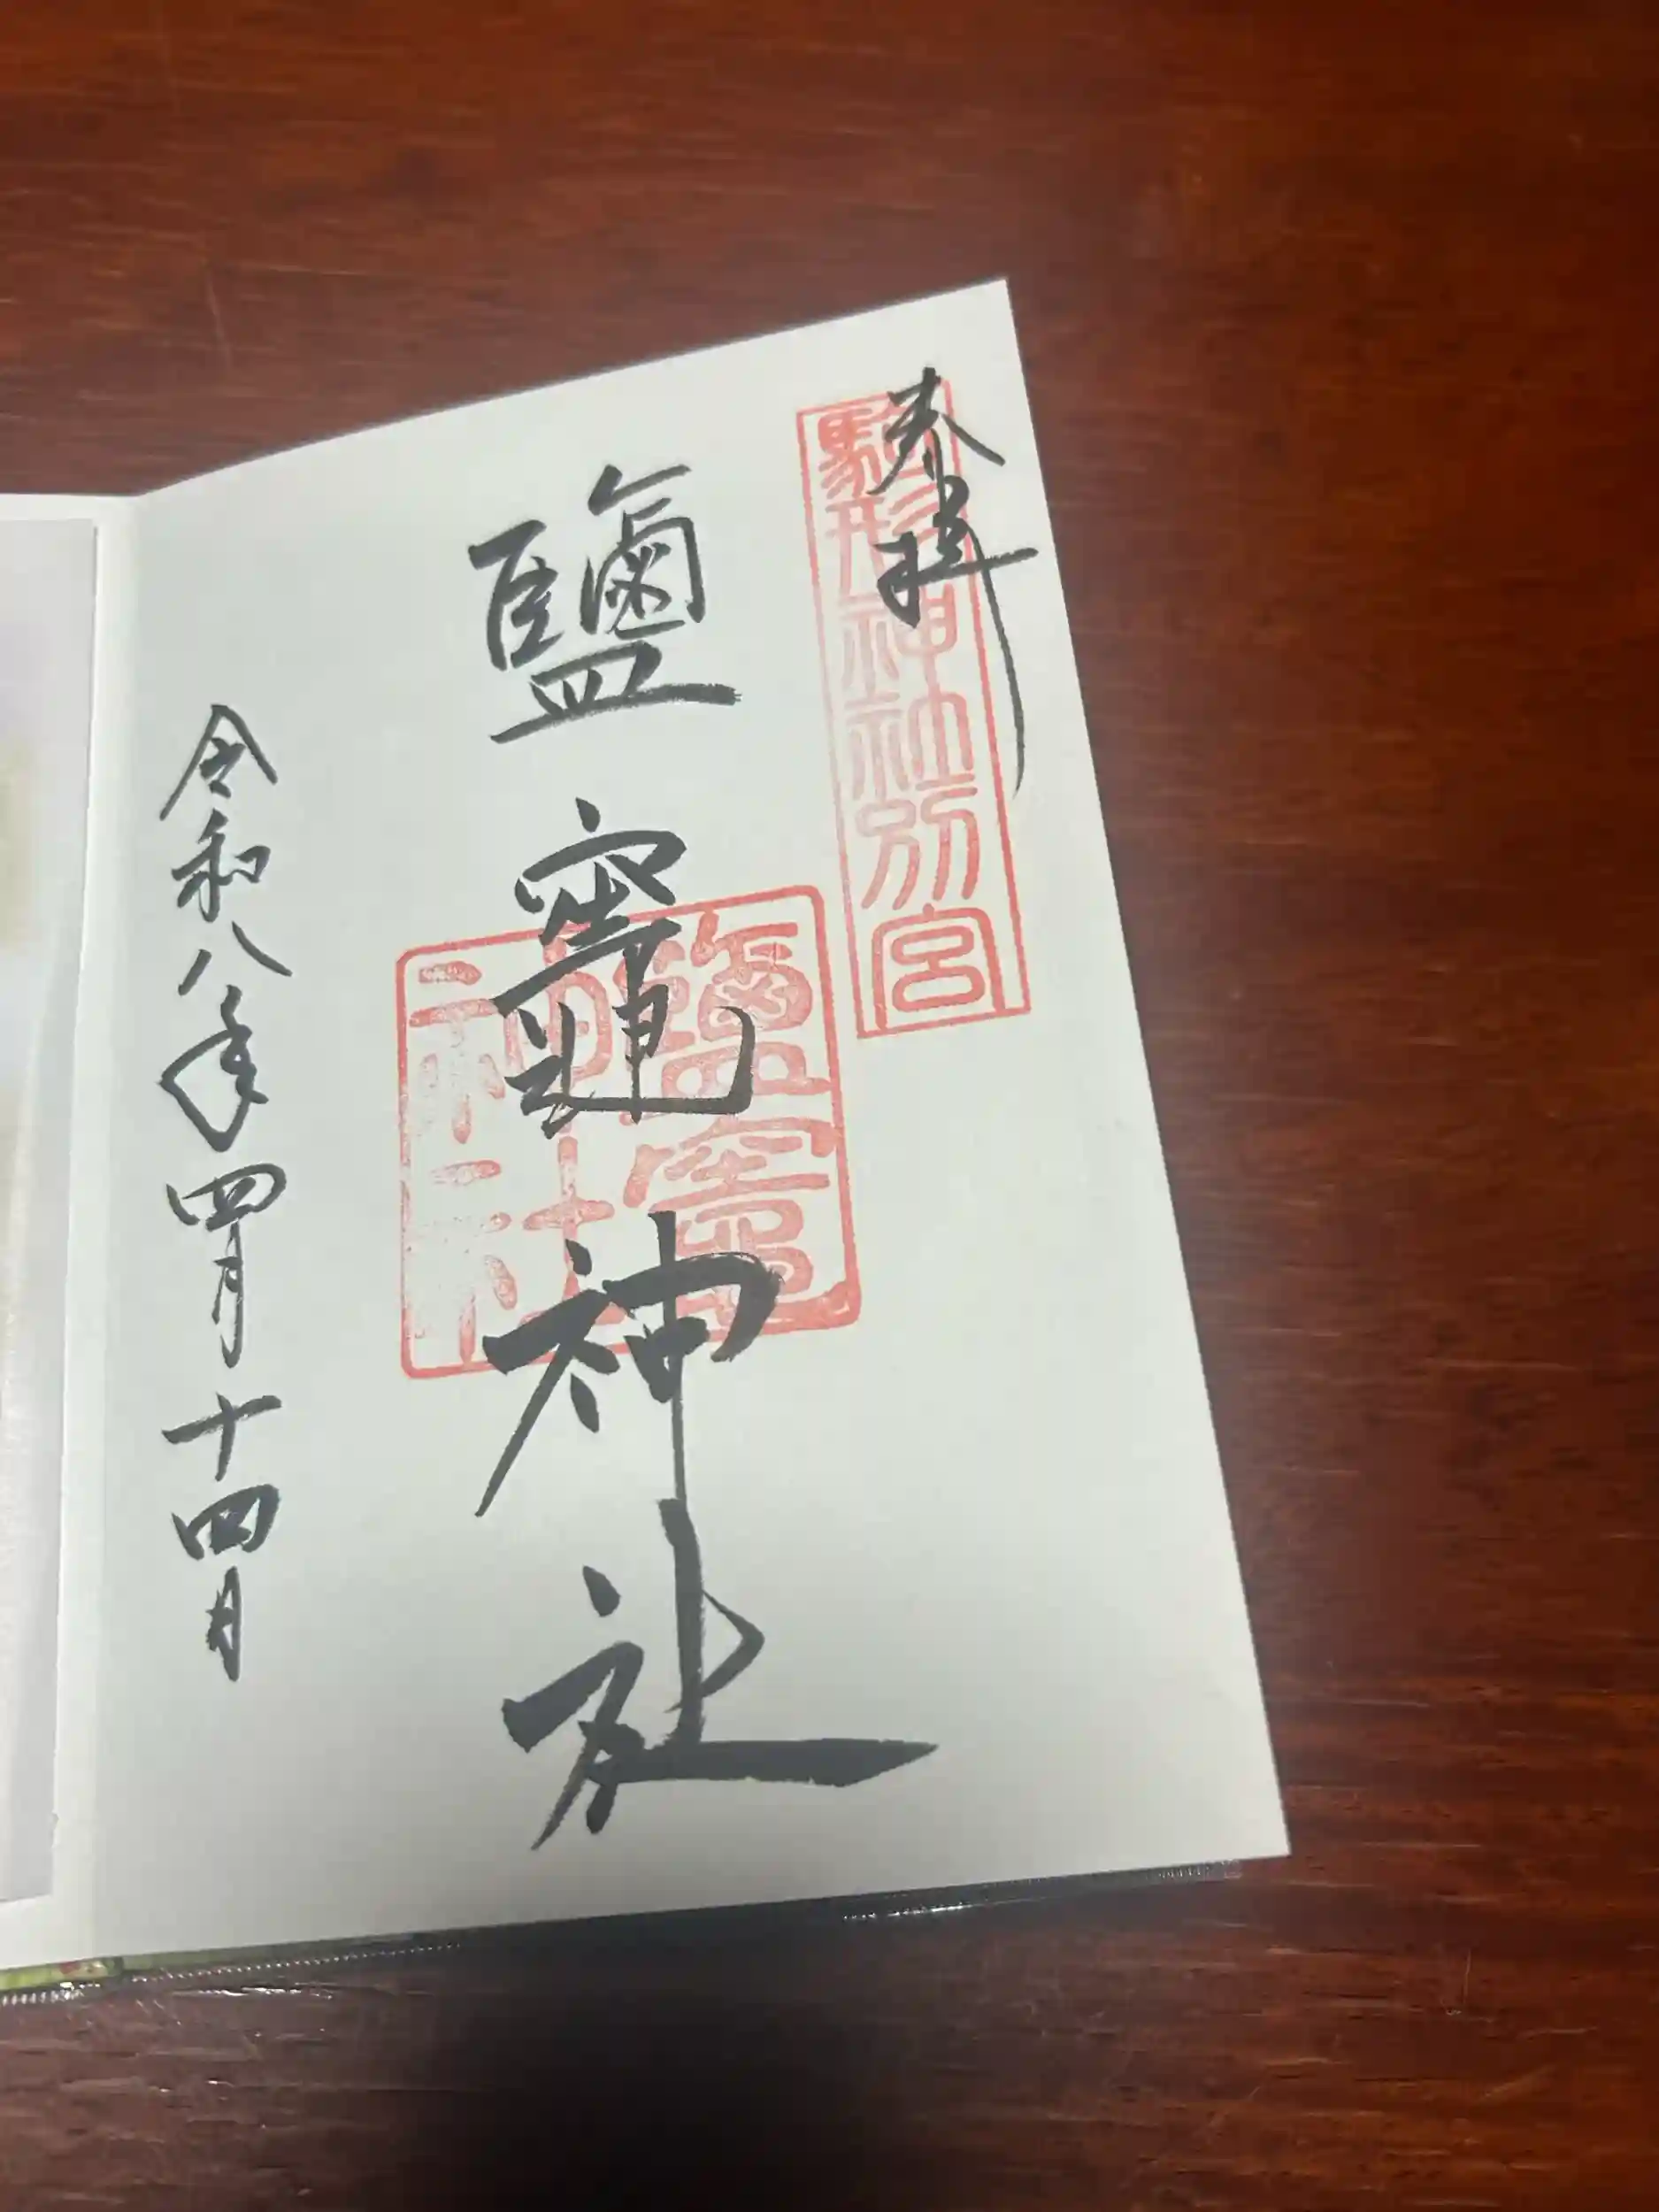 奉拝
駒形神社別宮
鹽竈神社
鹽竈神社
令和八年四月十四日